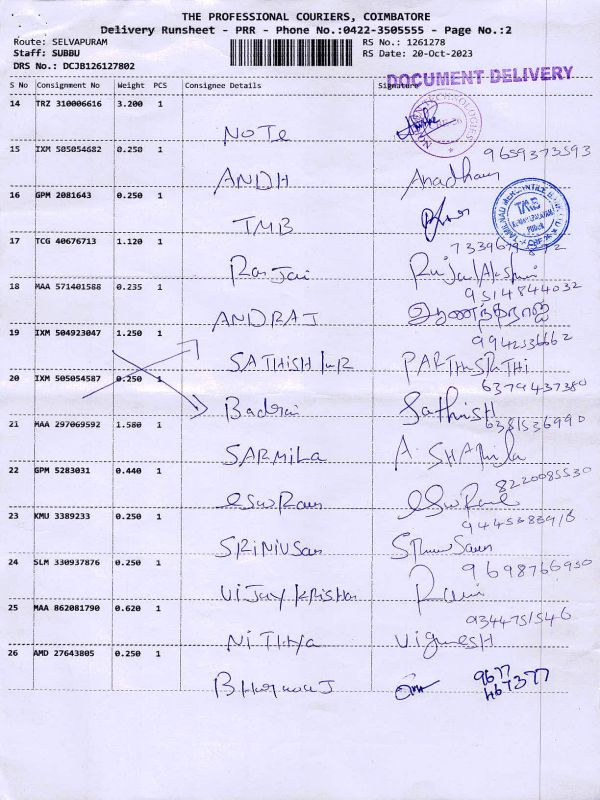 THE PROFESSIONAL COURIERS, COIMBATORE
Delivery Runsheet - PRR - Phone No.:0422-3505555 - Page No.:2
Route: SELVAPURAM RS No.: 1261278
Staff: SUBBU RS Date: 20-Oct-2023
DRS No.: DCJB126127802
DOCUMENT DELIVERY
S No Consignment No Weight PCS Consignee Details Signature
14 TRZ 310006616 3.200 1
NOTe
15 IXM 505054682 0.250 1 9659373593
ANDH Anadhan
16 GPM 2081643 0.250 1
TMB
TMB
17 TCG 40676713 1.120 1
Rajlakshmi
18 MAA 571401588 0.235 1 9514844032
ANDRAJ ஆனந்தராஜ்
19 IXM 504923047 1.250 1 9942536662
SATHISH PARTHASRATHI
20 IXM 505054587 0.250 1 6379437380
Badrai Sathish
21 MAA 297069592 1.580 1 6381536990
SARMILA A. SHAMila
22 GPM 5283031 0.440 1 8220085530
eswRan
23 KMU 3389233 0.250 1
SRINIVSan
24 SLM 330937876 0.250 1 9698766930
Vijay krishan
25 MAA 862081790 0.620 1 9344751546
NiTHya VigNeSH
26 AMD 27643805 0.250 1 9677
467377